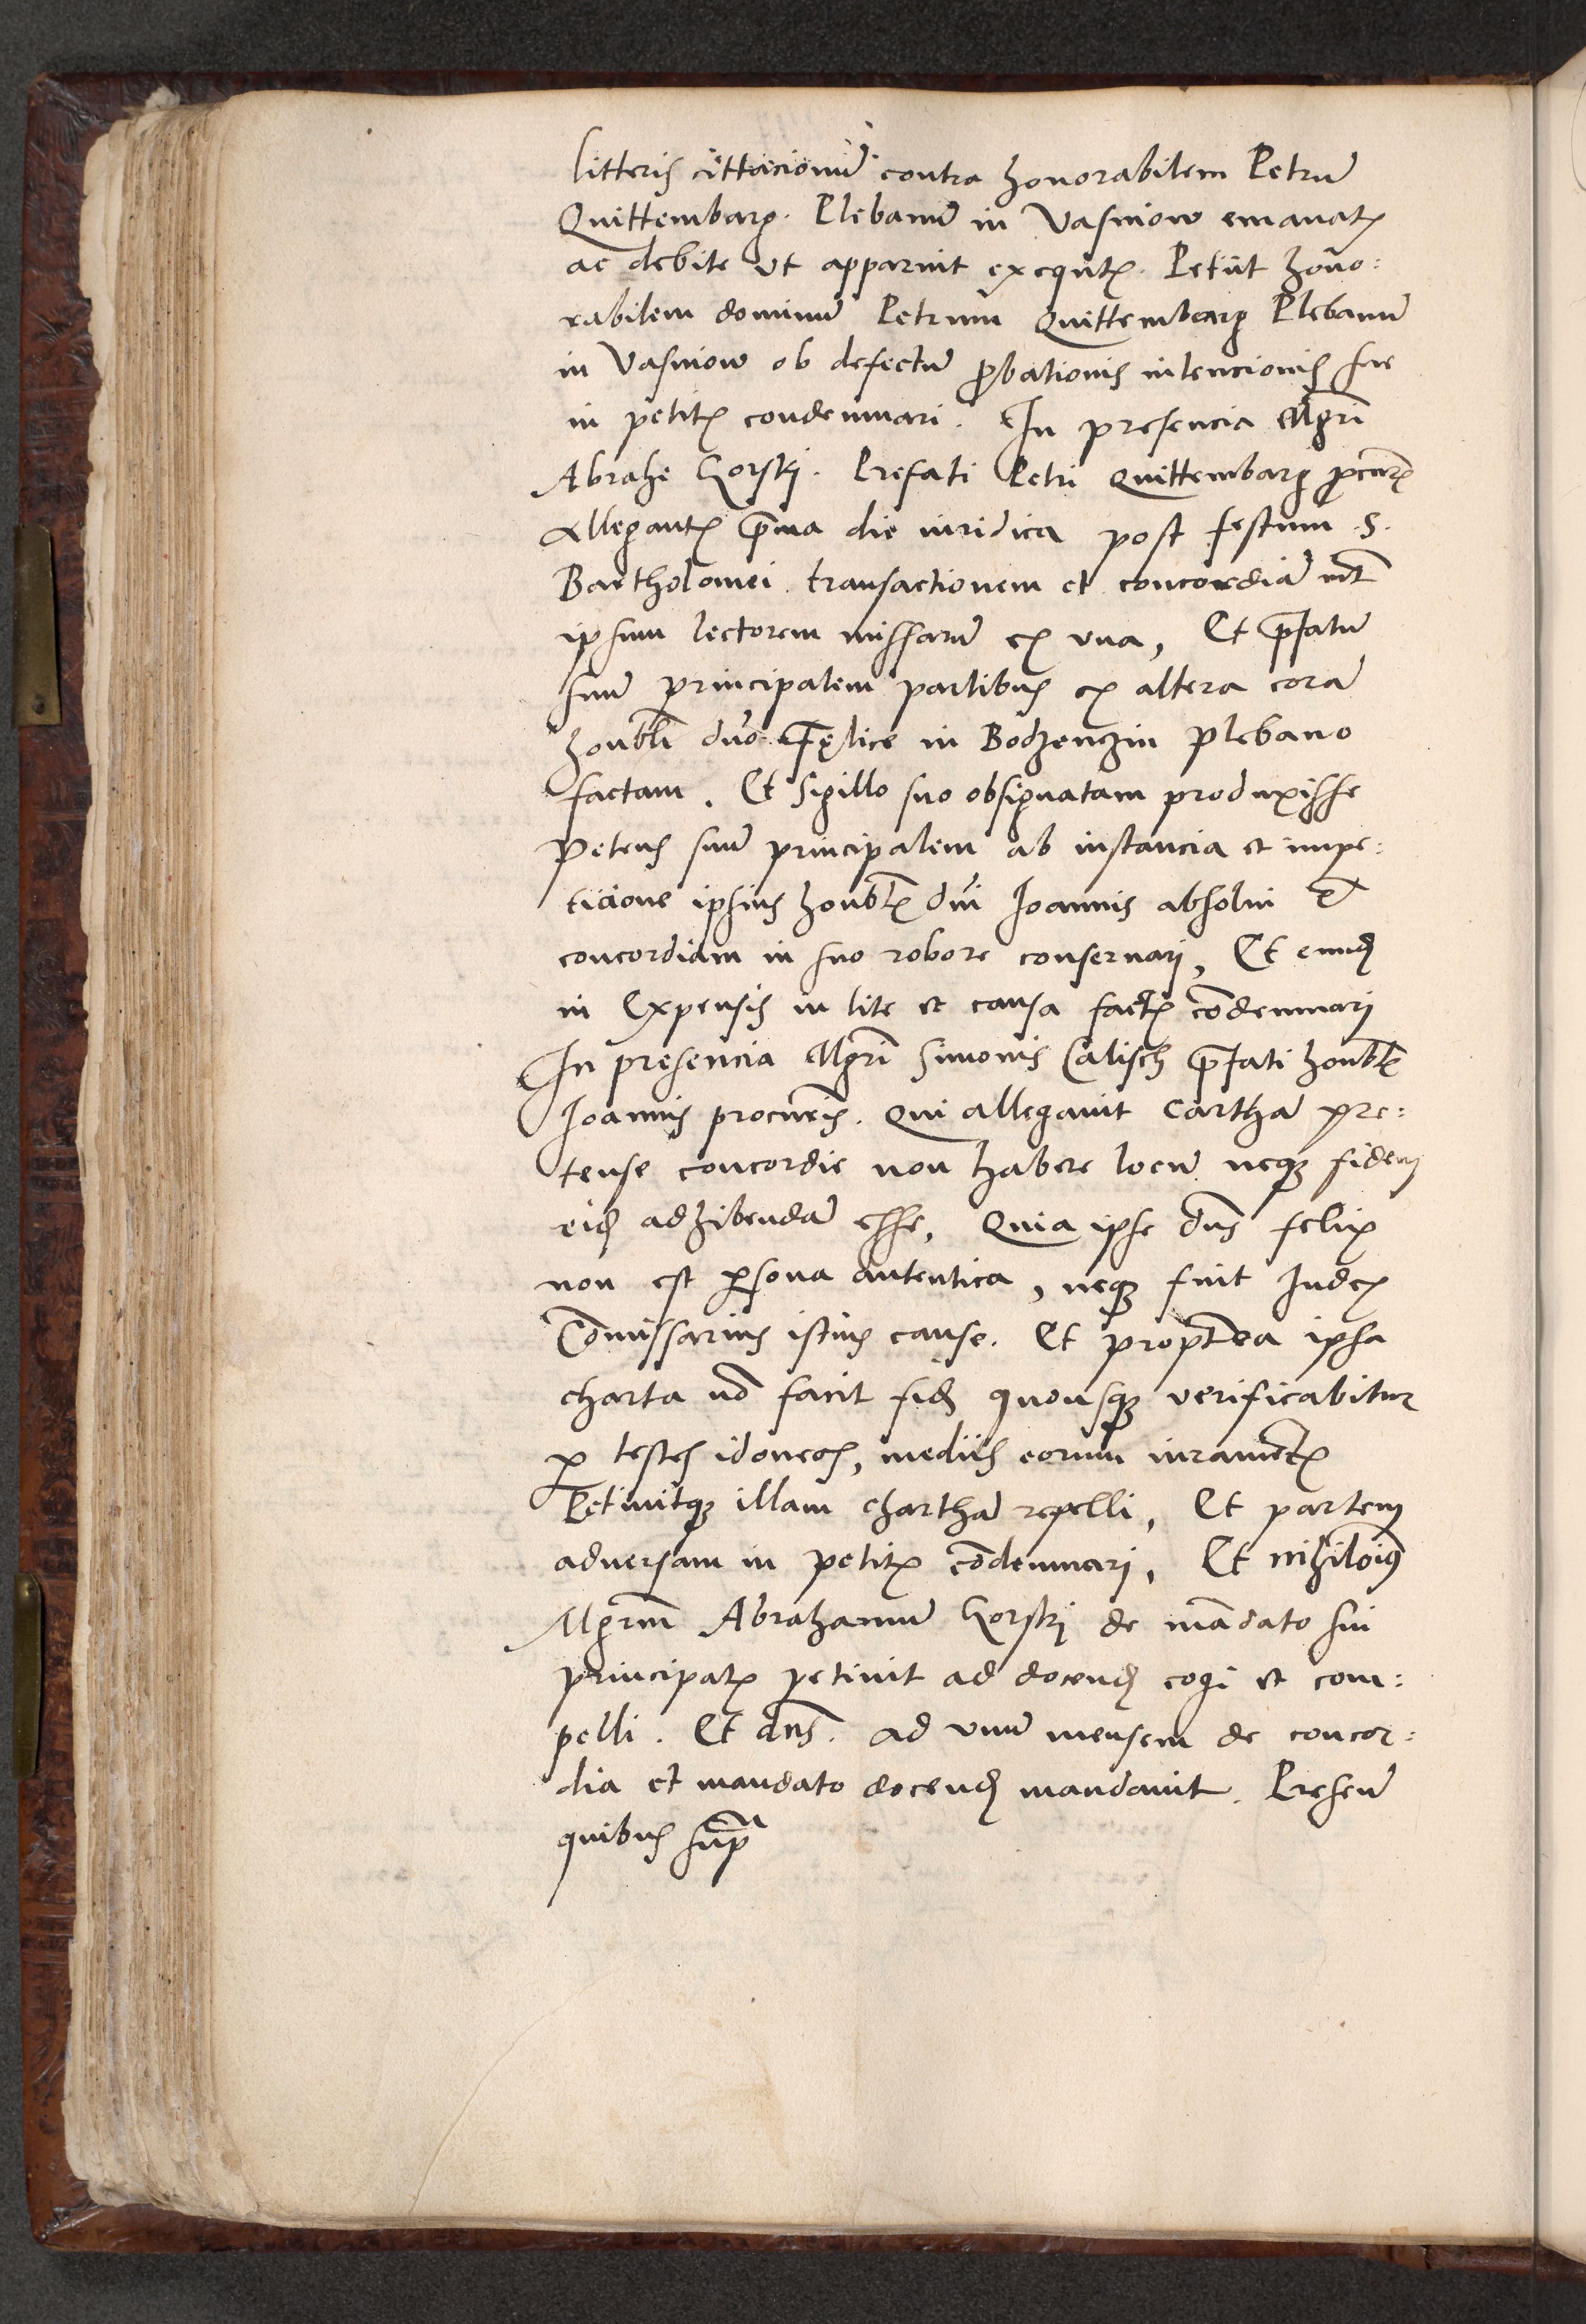 litteris cittacionũ contra honorabilem Petrũ
Quittembarg. Plebanũ in Vasniow emanatꝭ
ac debite vt apparuit exequtꝭ. Petiit hono:
rabilem dominũ Petrum Quittembarg Plebanũ
in Vasniow ob defectũ ꝓbationis intencionis sue
in petitꝭ condemnari. In presencia Mgrĩ
Abrahe Gorskj. Prefati Petri Quittembarg ꝓcurꝭ
Allegantꝭ p̃ma die iuridica post festum S.
Bartholomei transactionem et concordiã int̃
ipsum lectorem missarũ ex vna, Et p̃fatũ
suũ principalem partibus ex altera corã
honbli dño Fęlice in Bodzenczin plebano
factam. Et Sigillo suo obsignatam produxisse
Petens suũ principalem ab instancia et impe:
ticione ipsius honblꝭ dñi Joannis absolui Et
concordiam in suo robore conseruarj, Et eund̃
in Expensis in lite et causa factꝭ cõdemnarj
In presencia Mgrĩ Simonis Calisch p̃fati honblꝭ
Joannis procur̃is. Qui allegauit cartha pre:
tense concordie non habere locũ neqꝫ fidem
eid̃ adhibendã esse. Quia ipse dñs felix
non est ꝑsona autentica, neqꝫ fuit Iudex
Cõmissarius istius cause. Et propt̃ea ipsa
charta nõ facit fid̃ quousqꝫ verificabitur
ꝑ testes idoneos, mediis eorum iuramentꝭ
Petiuitqꝫ illam charthã repelli, Et partem
aduersam in petitꝭ cõdemnarj, Et nihilõiꝯ
Mgrm̃ Abrahamũ Gorskj de mãdato sui
principalꝭ petiuit ad docend̃ cogi et com:
pelli. Et dñs. ad vnũ mensem de concor:
dia et mandato docend̃ mandauit. Presenũ
quibus supra